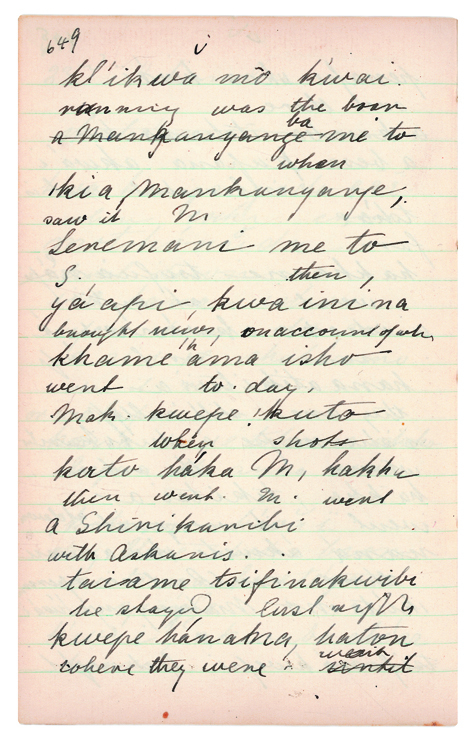 649
kl'ikwa mō k'wai.
running was the boar
a Mankanyange me to
ba
when
kia Mankanyange,
saw it M
Senemani me to
S. then,
yá api, kwa ini na
brought news, on account of wh.
khame 'ama isho
went to day,
Mak kwepe kuto
when shots
kato háka M, hakhu
then went M. went
a Shirikanibi
with Askaris.
tarame tsifinakwibi
he stayed last night
kwepe hánatna, haton
where they were went